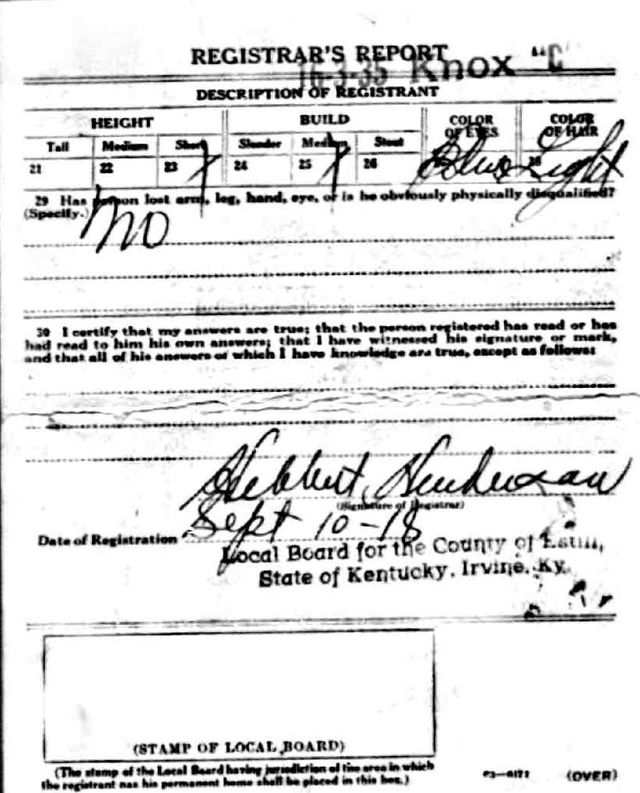 REGISTRAR'S REPORT
16-3-35 Knox "C"
DESCRIPTION OF REGISTRANT
HEIGHT BUILD COLOR OF EYES COLOR OF HAIR
Tall Medium Short Slender Medium Stout
21 22 23 / 24 25 / 26 Blue 28 Light
29 Has person lost arm, leg, hand, eye, or is he obviously physically disqualified?
(Specify.) No
30 I certify that my answers are true; that the person registered has read or has
had read to him his own answers; that I have witnessed his signature or mark,
and that all of his answers of which I have knowledge are true, except as follows:
Henderson
(Signature of Registrar)
Date of Registration Sept 10-18
Local Board for the County of Estill,
State of Kentucky, Irvine, Ky.
(STAMP OF LOCAL BOARD)
(The stamp of the Local Board having jurisdiction of the area in which
the registrant has his permanent home shall be placed in this box.)
03—6171 (OVER)